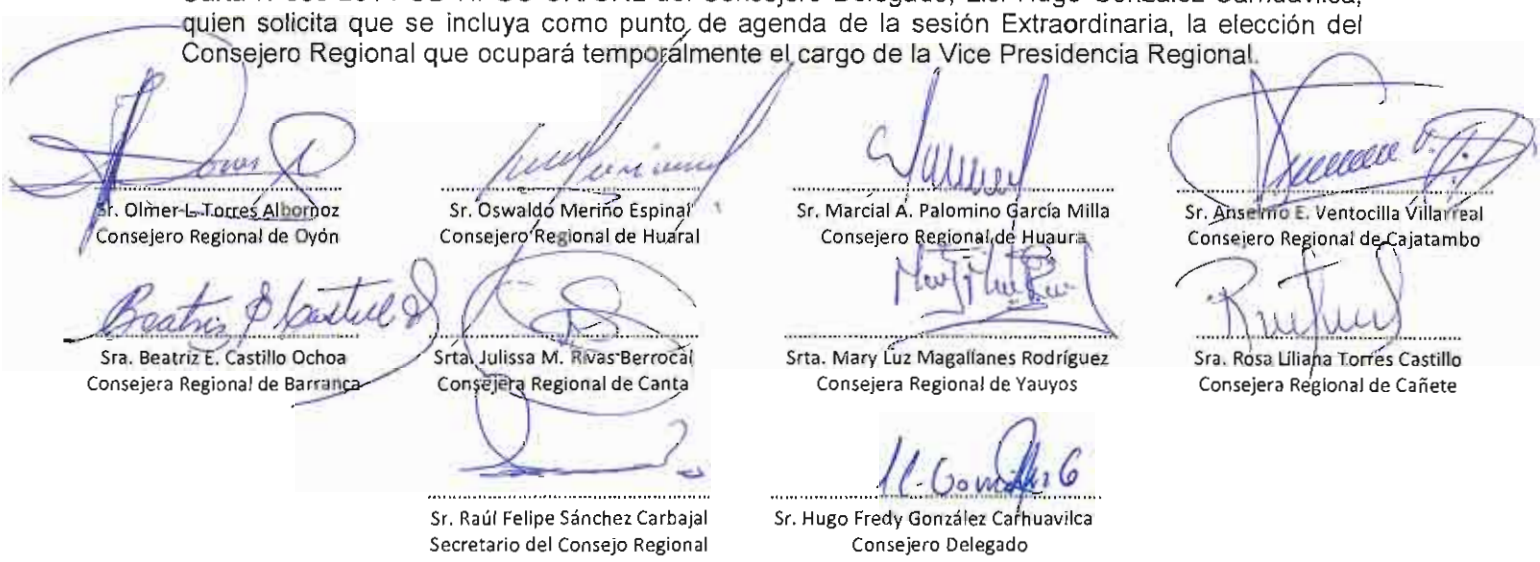 quien solicita que se incluya como punto de agenda de la sesión Extraordinaria, la elección del
Consejero Regional que ocupará temporálmente el cargo de la Vice Presidencia Regional.
Sr. Olmer L. Torres Albornoz
Consejero Regional de Oyón
Sr. Oswaldo Merino Espinal
Consejero Regional de Huaral
Sr. Marcial A. Palomino García Milla
Consejero Regional de Huaura
Sr. Anselmo E. Ventocilla Villarreal
Consejero Regional de Cajatambo
Beatriz E Castillo O
Sra. Beatriz E. Castillo Ochoa
Consejera Regional de Barranca
Srta. Julissa M. Rivas Berrocal
Consejera Regional de Canta
Srta. Mary Luz Magallanes Rodríguez
Consejera Regional de Yauyos
Sra. Rosa Liliana Torres Castillo
Consejera Regional de Cañete
Sr. Raúl Felipe Sánchez Carbajal
Secretario del Consejo Regional
Sr. Hugo Fredy González Carhuavilca
Consejero Delegado